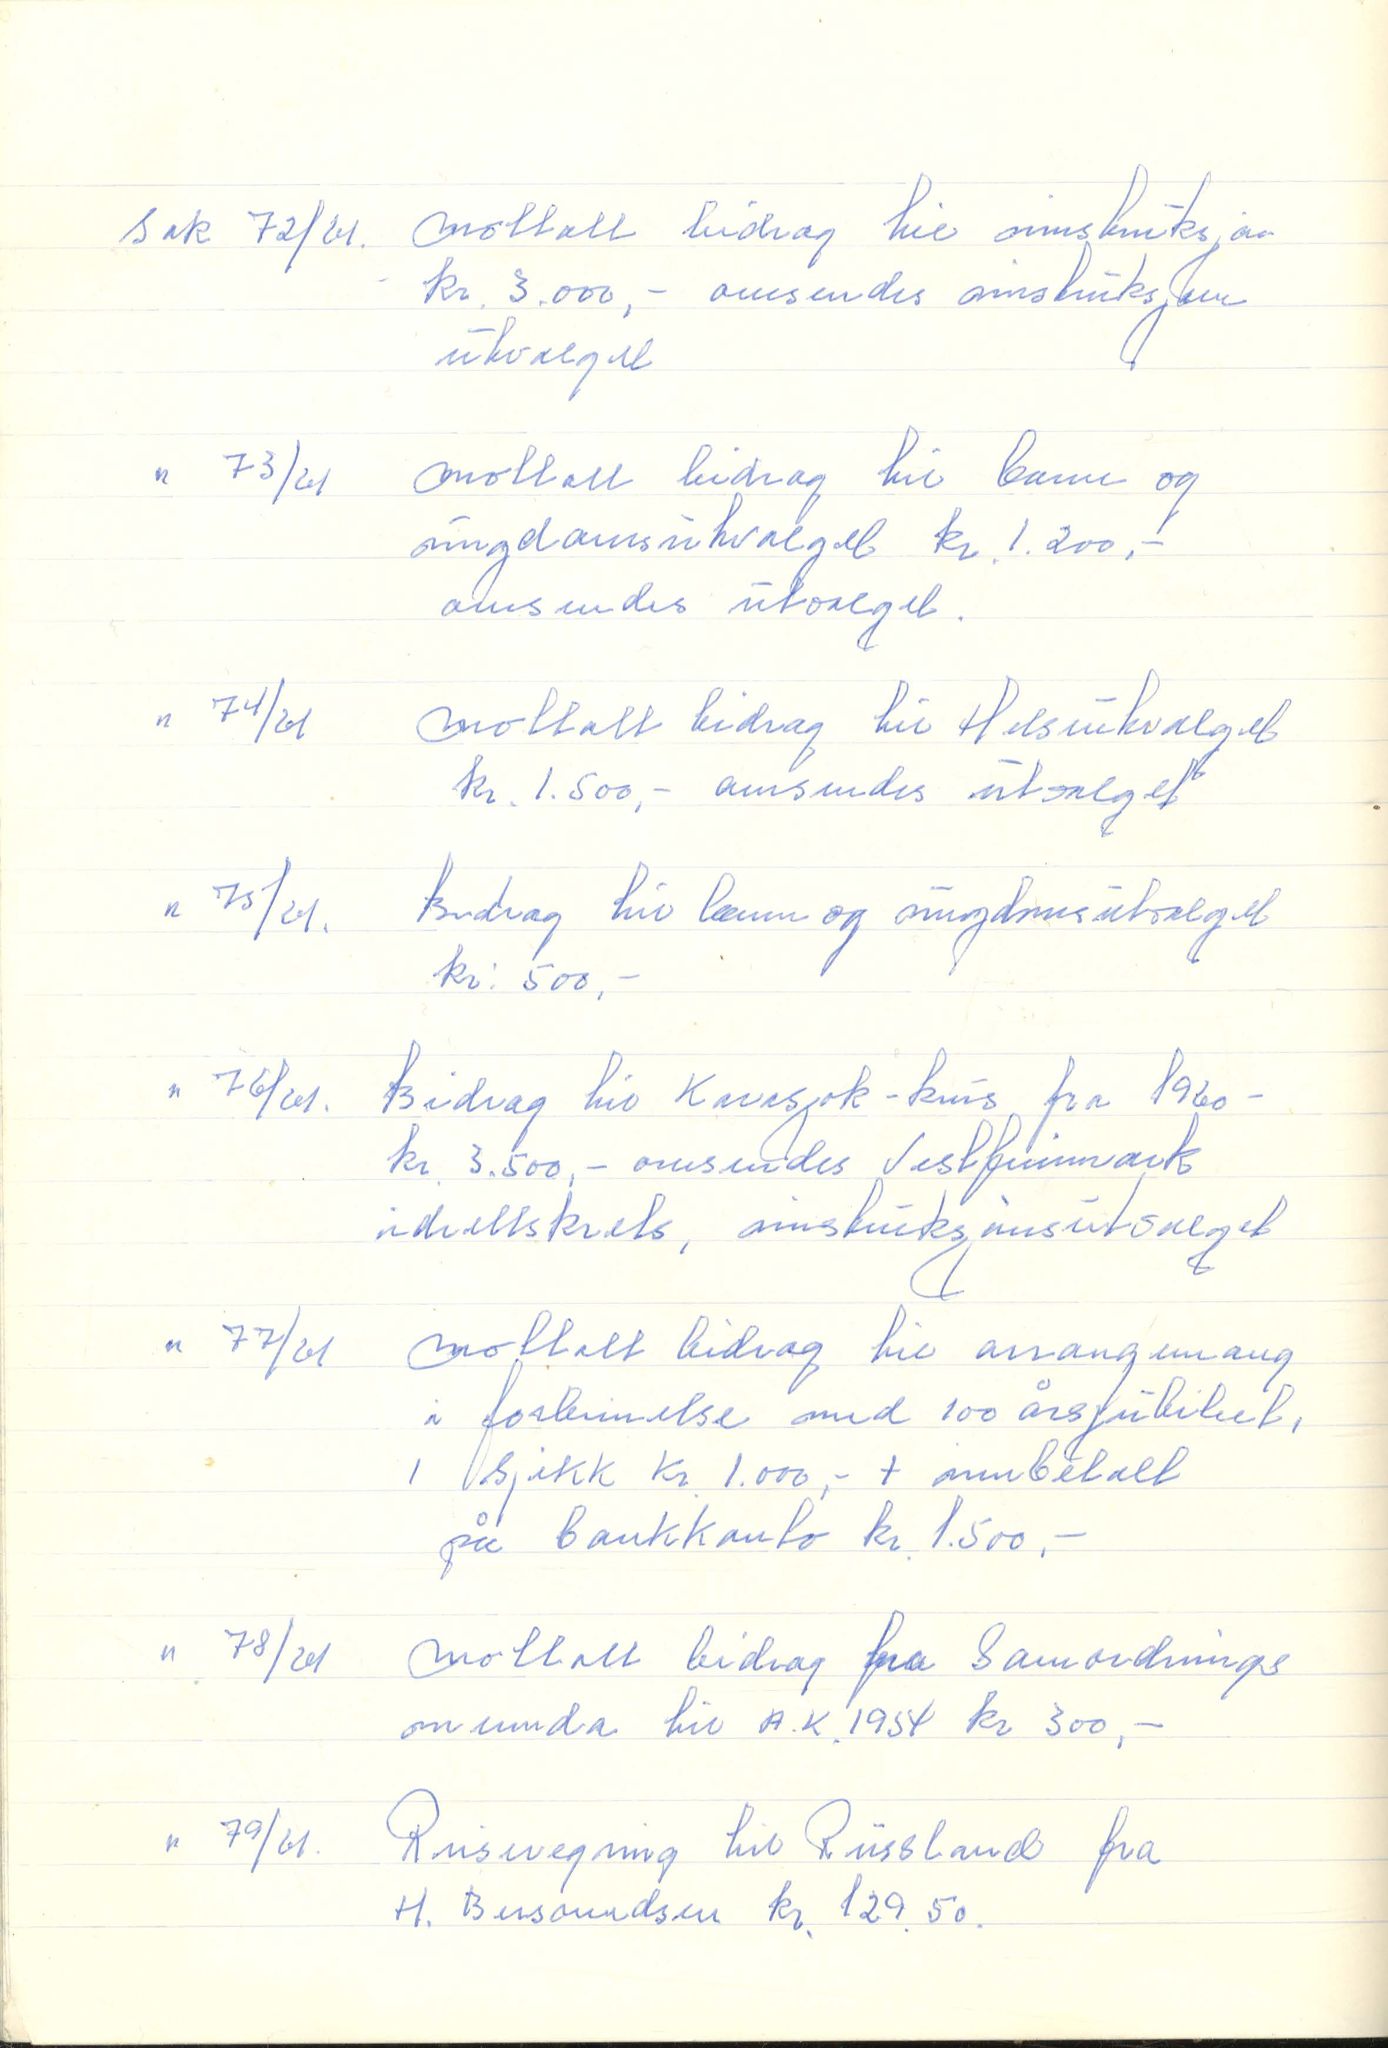 Sak 72/61. Mottatt bidrag til instruksjon
kr. 3.000,- ansendes instruksjons
utvalget
" 73/61 Mottatt bidrag til barne og
ungdomsutvalget kr. 1.200,-
ansendes utvalget.
" 74/61 Mottatt bidrag til Helsutvalget
kr. 1.500,- ansendes utvalget
" 75/61. Bidrag til barne og ungdomsutvalget
kr: 500,-
" 76/61. Bidrag til Karasjok-kurs fra 1960-
kr. 3.500,- ansendes Vestfinnmark
idrettskrets, instruksjonsutvalget
" 77/61 Mottatt bidrag til arrangemang
i forbinnelse med 100 årsjubileet,
1 sjekk kr. 1.000,- + innbetalt
på bankkonto kr. 1.500,-
" 78/61 Mottatt bidrag fra Samordnings
nemnda til A.K. 1954 kr 300,-
" 79/61. Reiseregning til Russland fra
H. kr. 129.50.